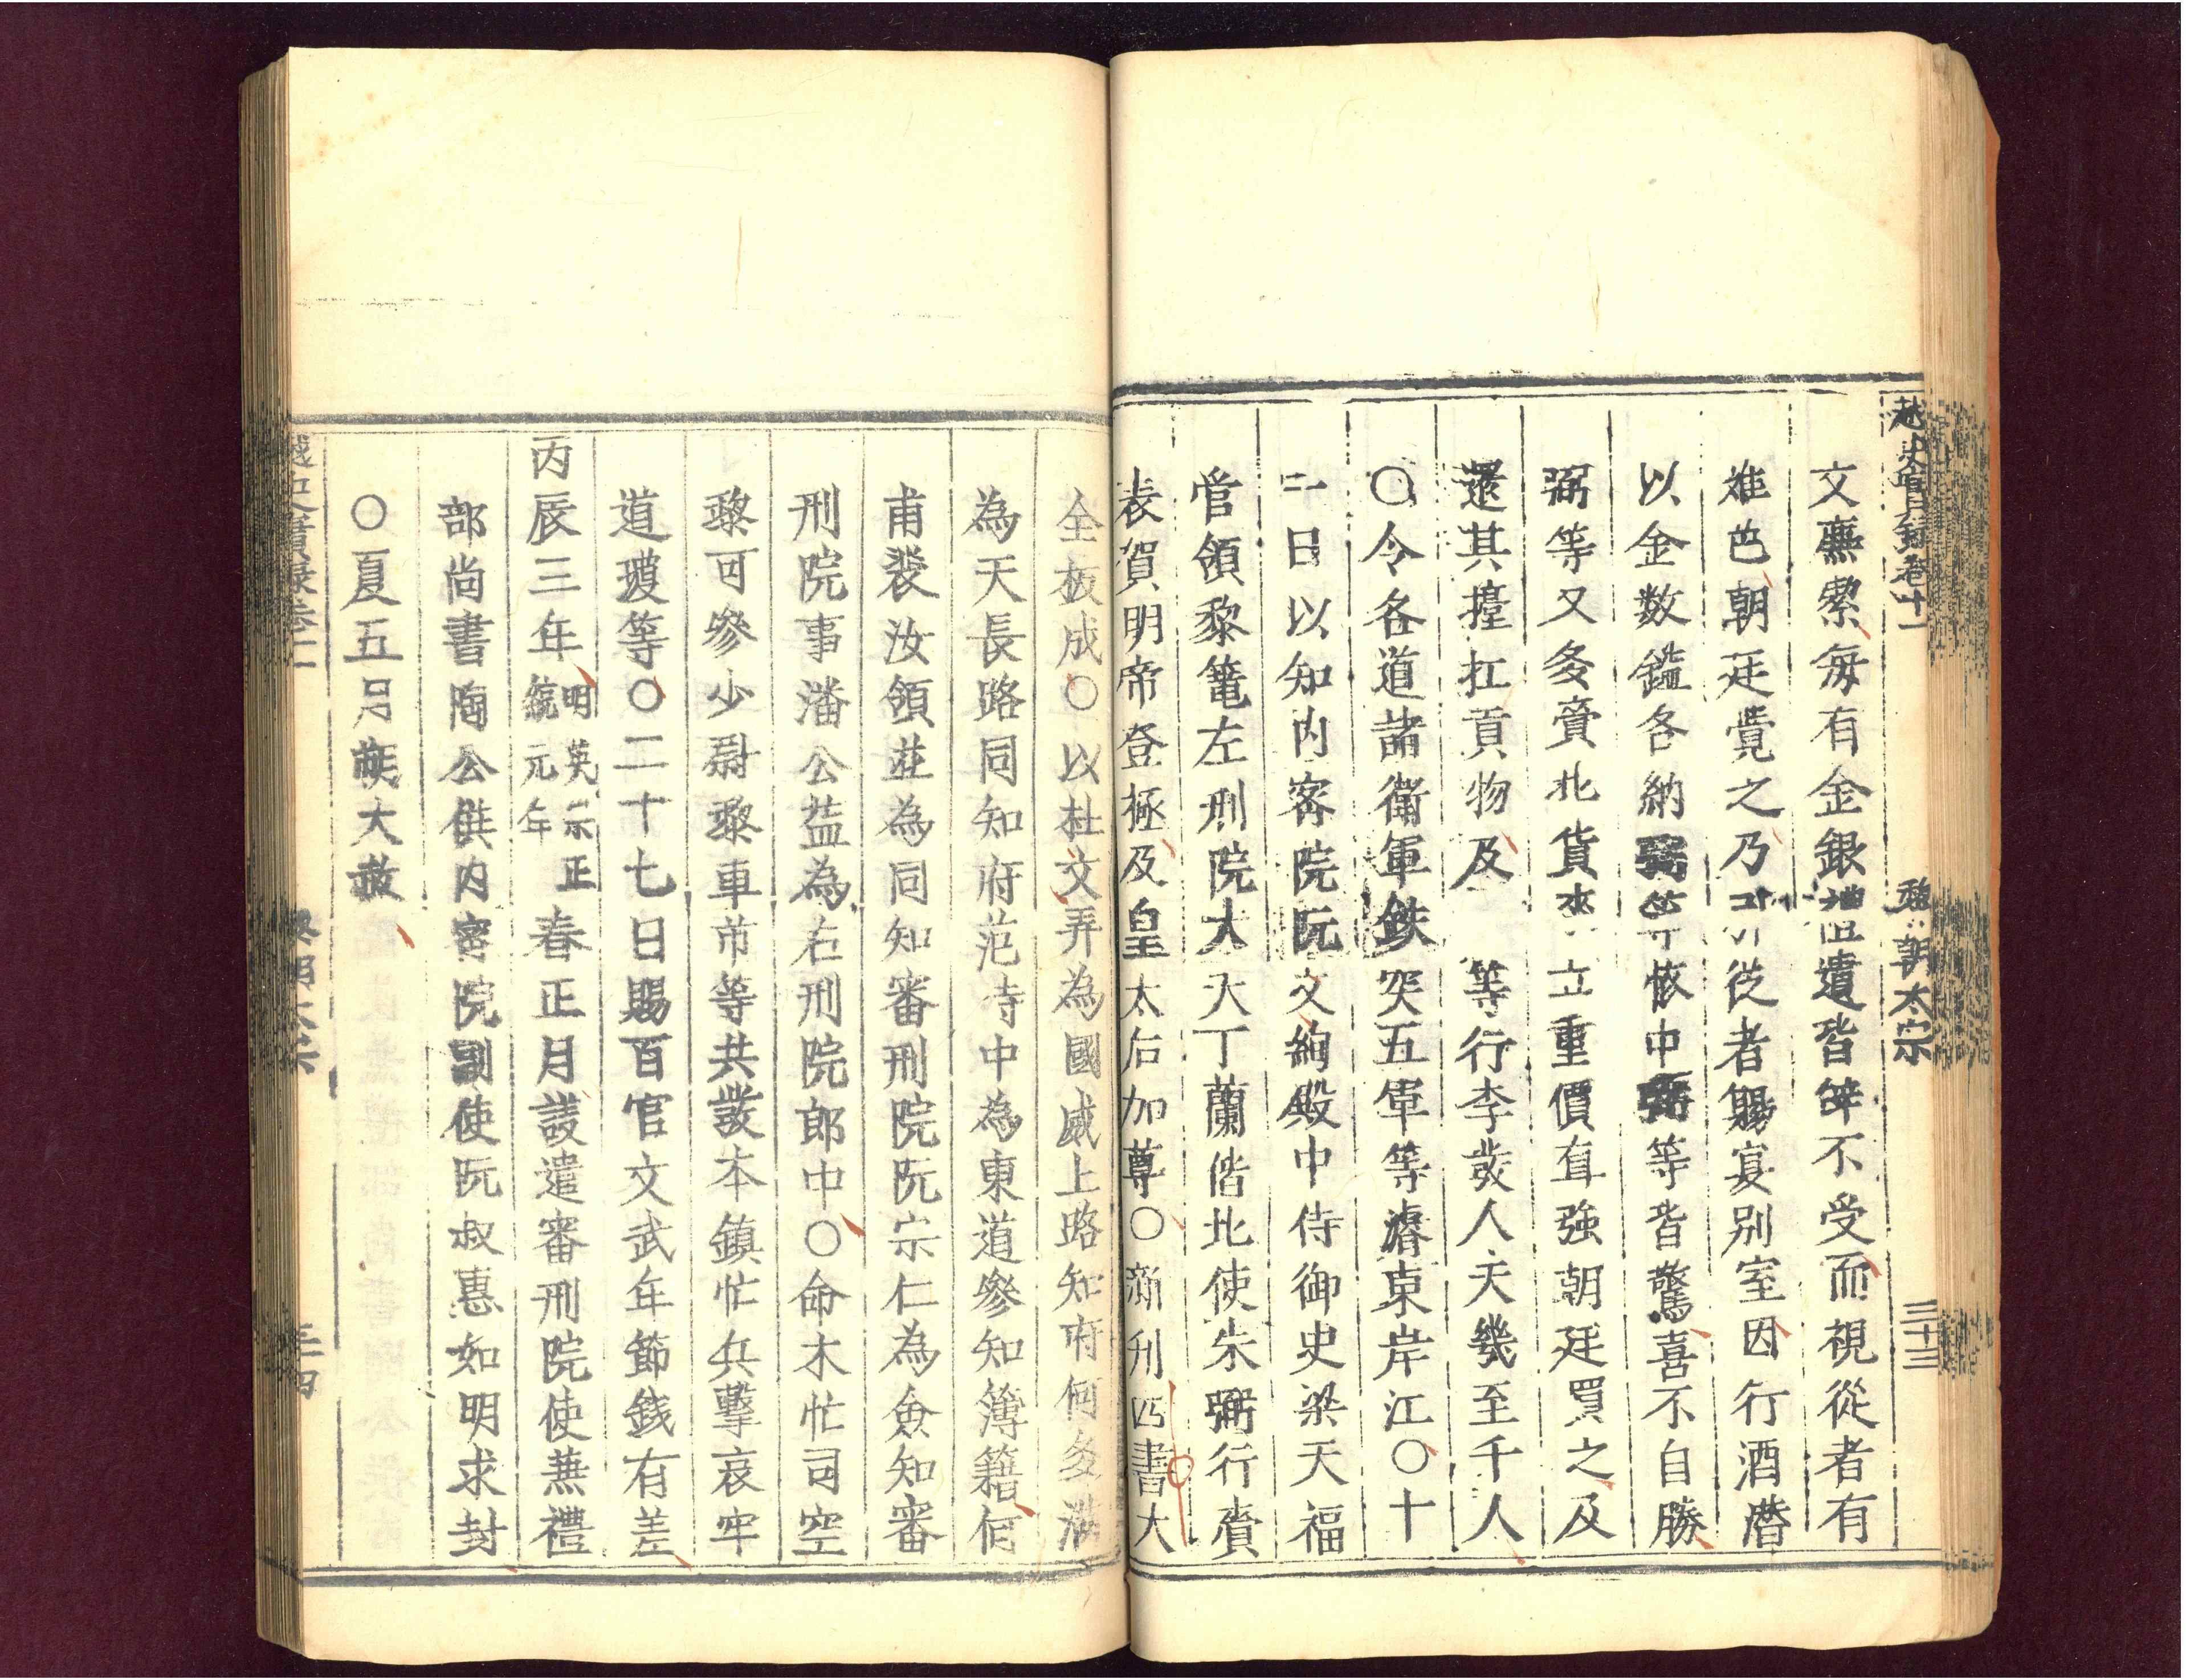 越史實錄卷十一 黎朝太宗 三十三
文無索每有金銀禮遺皆辞不受而視從者有
难色朝廷覺之乃召從者賜宴别室因行酒潜
以金数鎰各納弼等懷中弼等皆驚喜不自勝
弼等又多賫北貨來立重價直強朝廷買之及
還其擡扛貢物及等行李發人夫幾至千人
○令各道諸衛軍鉄突五軍等濬東岸江○十
二日以知内密院阮文絢殿中侍御史梁天福
當領黎篭左刑院大夫丁蘭偕北使朱弼行賫
表賀明帝登極及皇太后加尊○新刋四書大
全板成○以杜文弄為國威上路知府何多满
為天長路同知府范寺中為東道參知簿籍何
甫裴汝領莊為同知審刑院阮宗仁為僉知審
刑院事潘公益為右刑院郎中○命木忙司空
黎可參少尉黎車芇等共發本鎮忙兵擊哀牢
道瓊等○二十七日賜百官文武年節錢有差
丙辰三年明英宗正統元年春正月議遣審刑院使兼禮
部尚書陶公僎内密院副使阮叔惠如明求封
○夏五月旗大赦
越史實錄卷十一 黎朝太宗 三十四